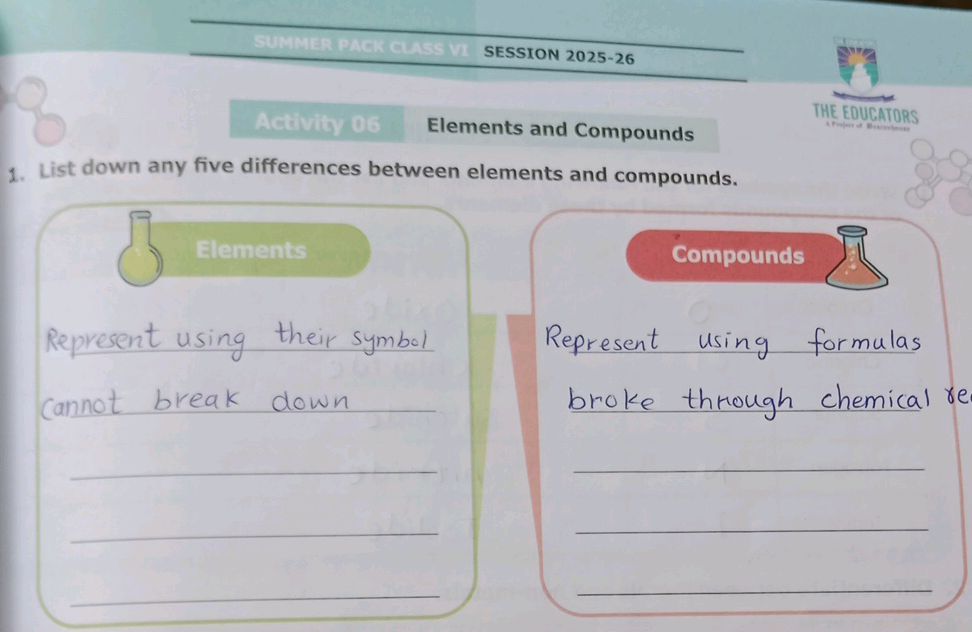 SUMMER PACK CLASS VI SESSION 2025-26
THE EDUCATORS
Activity 06 Elements and Compounds
1. List down any five differences between elements and compounds.
Elements
Compounds
Represent using their symbol
Cannot break down
Represent using formulas
broke through chemical re